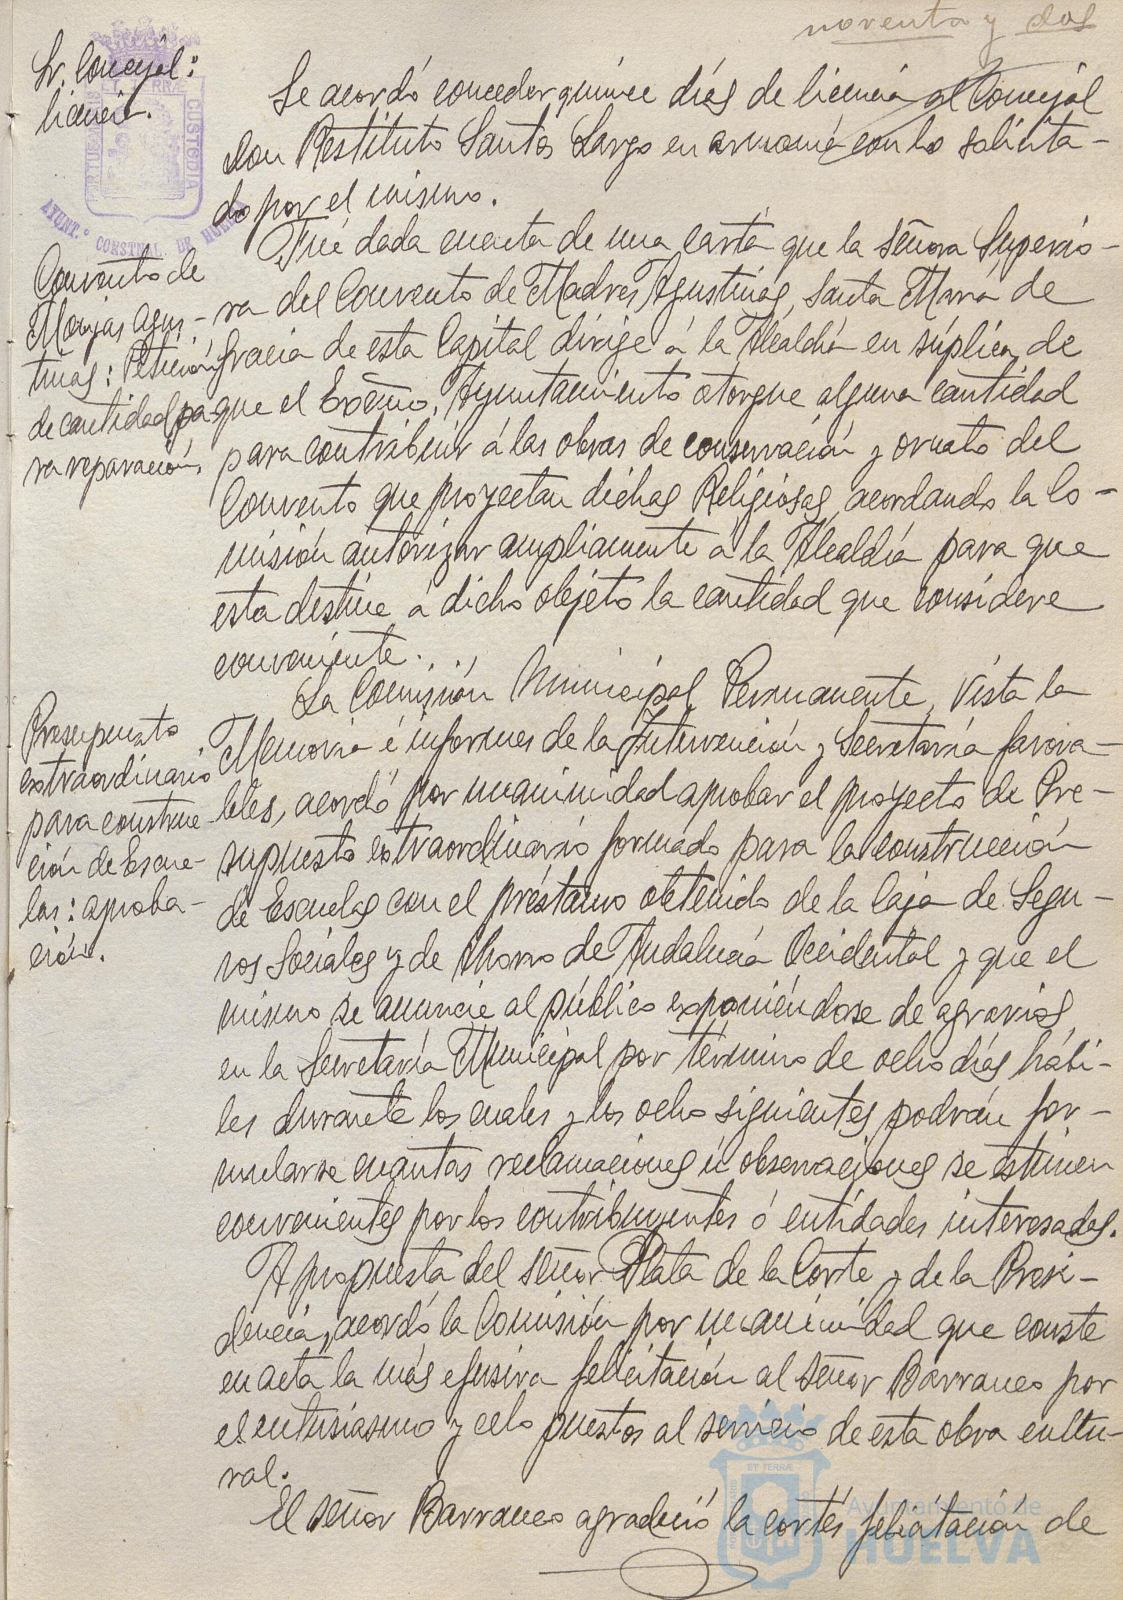 noventa y dos
Sr. Concejal:
licencia.
Se acordó conceder quince días de licencia al Concejal
don Restituto Santos Largo en armonía con lo solicita-
do por el mismo.
Convento de
Monjas Agus-
tinas: Petición
de cantidad pa-
ra reparación.
Fué dada cuenta de una carta que la señora Superio-
ra del Convento de Madres Agustinas, Santa María de
Gracia de esta Capital dirige á la Alcaldía en súplica de
que el Excmo. Ayuntamiento otorgue alguna cantidad
para contribuir á las obras de conservación y ornato del
Convento que proyectan dichas Religiosas, acordando la Co-
misión autorizar ampliamente á la Alcaldía para que
esta destine á dicho objeto la cantidad que considere
conveniente.
Presupuesto
extraordinario
para construc-
ción de Escue-
las: aproba-
ción.
La Comisión Municipal Permanente, vista la
Memoria é informes de la Intervención y Secretaría favora-
bles, acordó por unanimidad aprobar el proyecto de Pre-
supuesto extraordinario formado para la construcción
de Escuelas con el préstamo obtenido de la Caja de Segu-
ros Sociales y de Ahorro de Andalucía Occidental y que el
mismo se anuncie al público exponiéndose de agravios
en la Secretaría Municipal por término de ocho días hábi-
les durante los cuales y los ocho siguientes podrán for-
mularse cuantas reclamaciones ú observaciones se estimen
convenientes por los contribuyentes ó entidades interesadas.
A propuesta del señor Plata de la Corte y de la Presi-
dencia, acordó la Comisión por unanimidad que conste
en acta la más efusiva felicitación al señor Barranco por
el entusiasmo y celo puestos al servicio de esta obra cultu-
ral.
El señor Barranco agradeció la cortés felicitación de
AYUNT.º CONSTNAL. DE HUELVA
PORTUS MARIS ET TERRÆ CUSTODIA
Ayuntamiento de
HUELVA